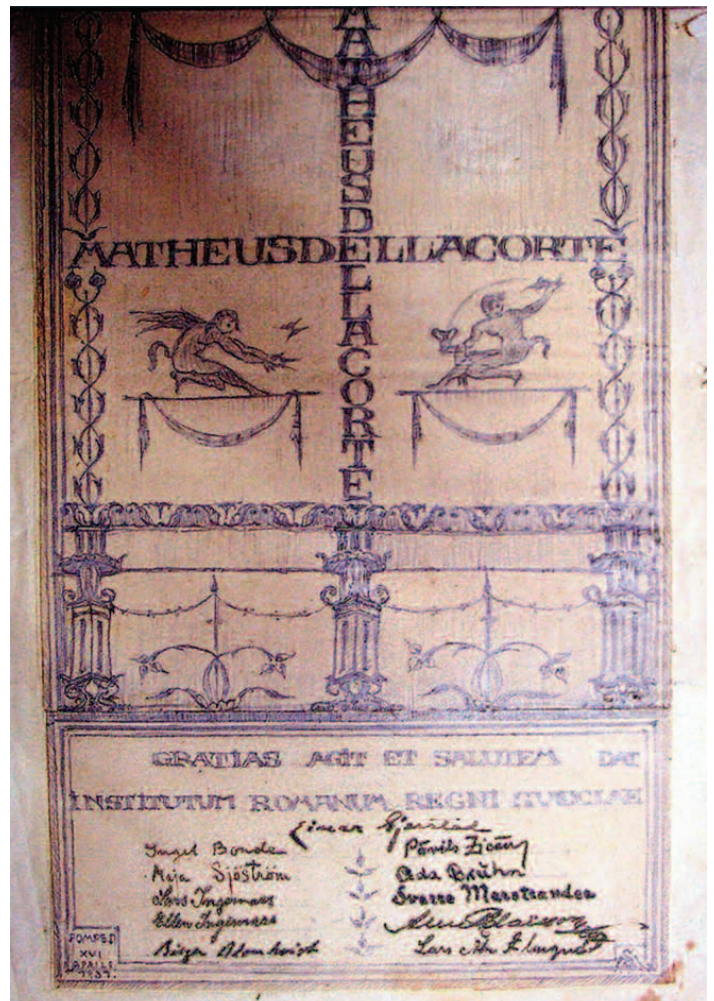 MATHEUSDELLACORTE
MATHEUSDELLACORTE
GRATIAS AGIT ET SALUTEM DAT
INSTITUTUM ROMANUM REGNI SUECIAE
Einar Gjerstad
Ingel Bonde
Maja Sjöström
Lars Ingemars
Ellen Ingemars
Birger
Påvils
Ada Brühn
Sverre Marstrander
Lars
POMPEII
XVI
APRILI
1937.